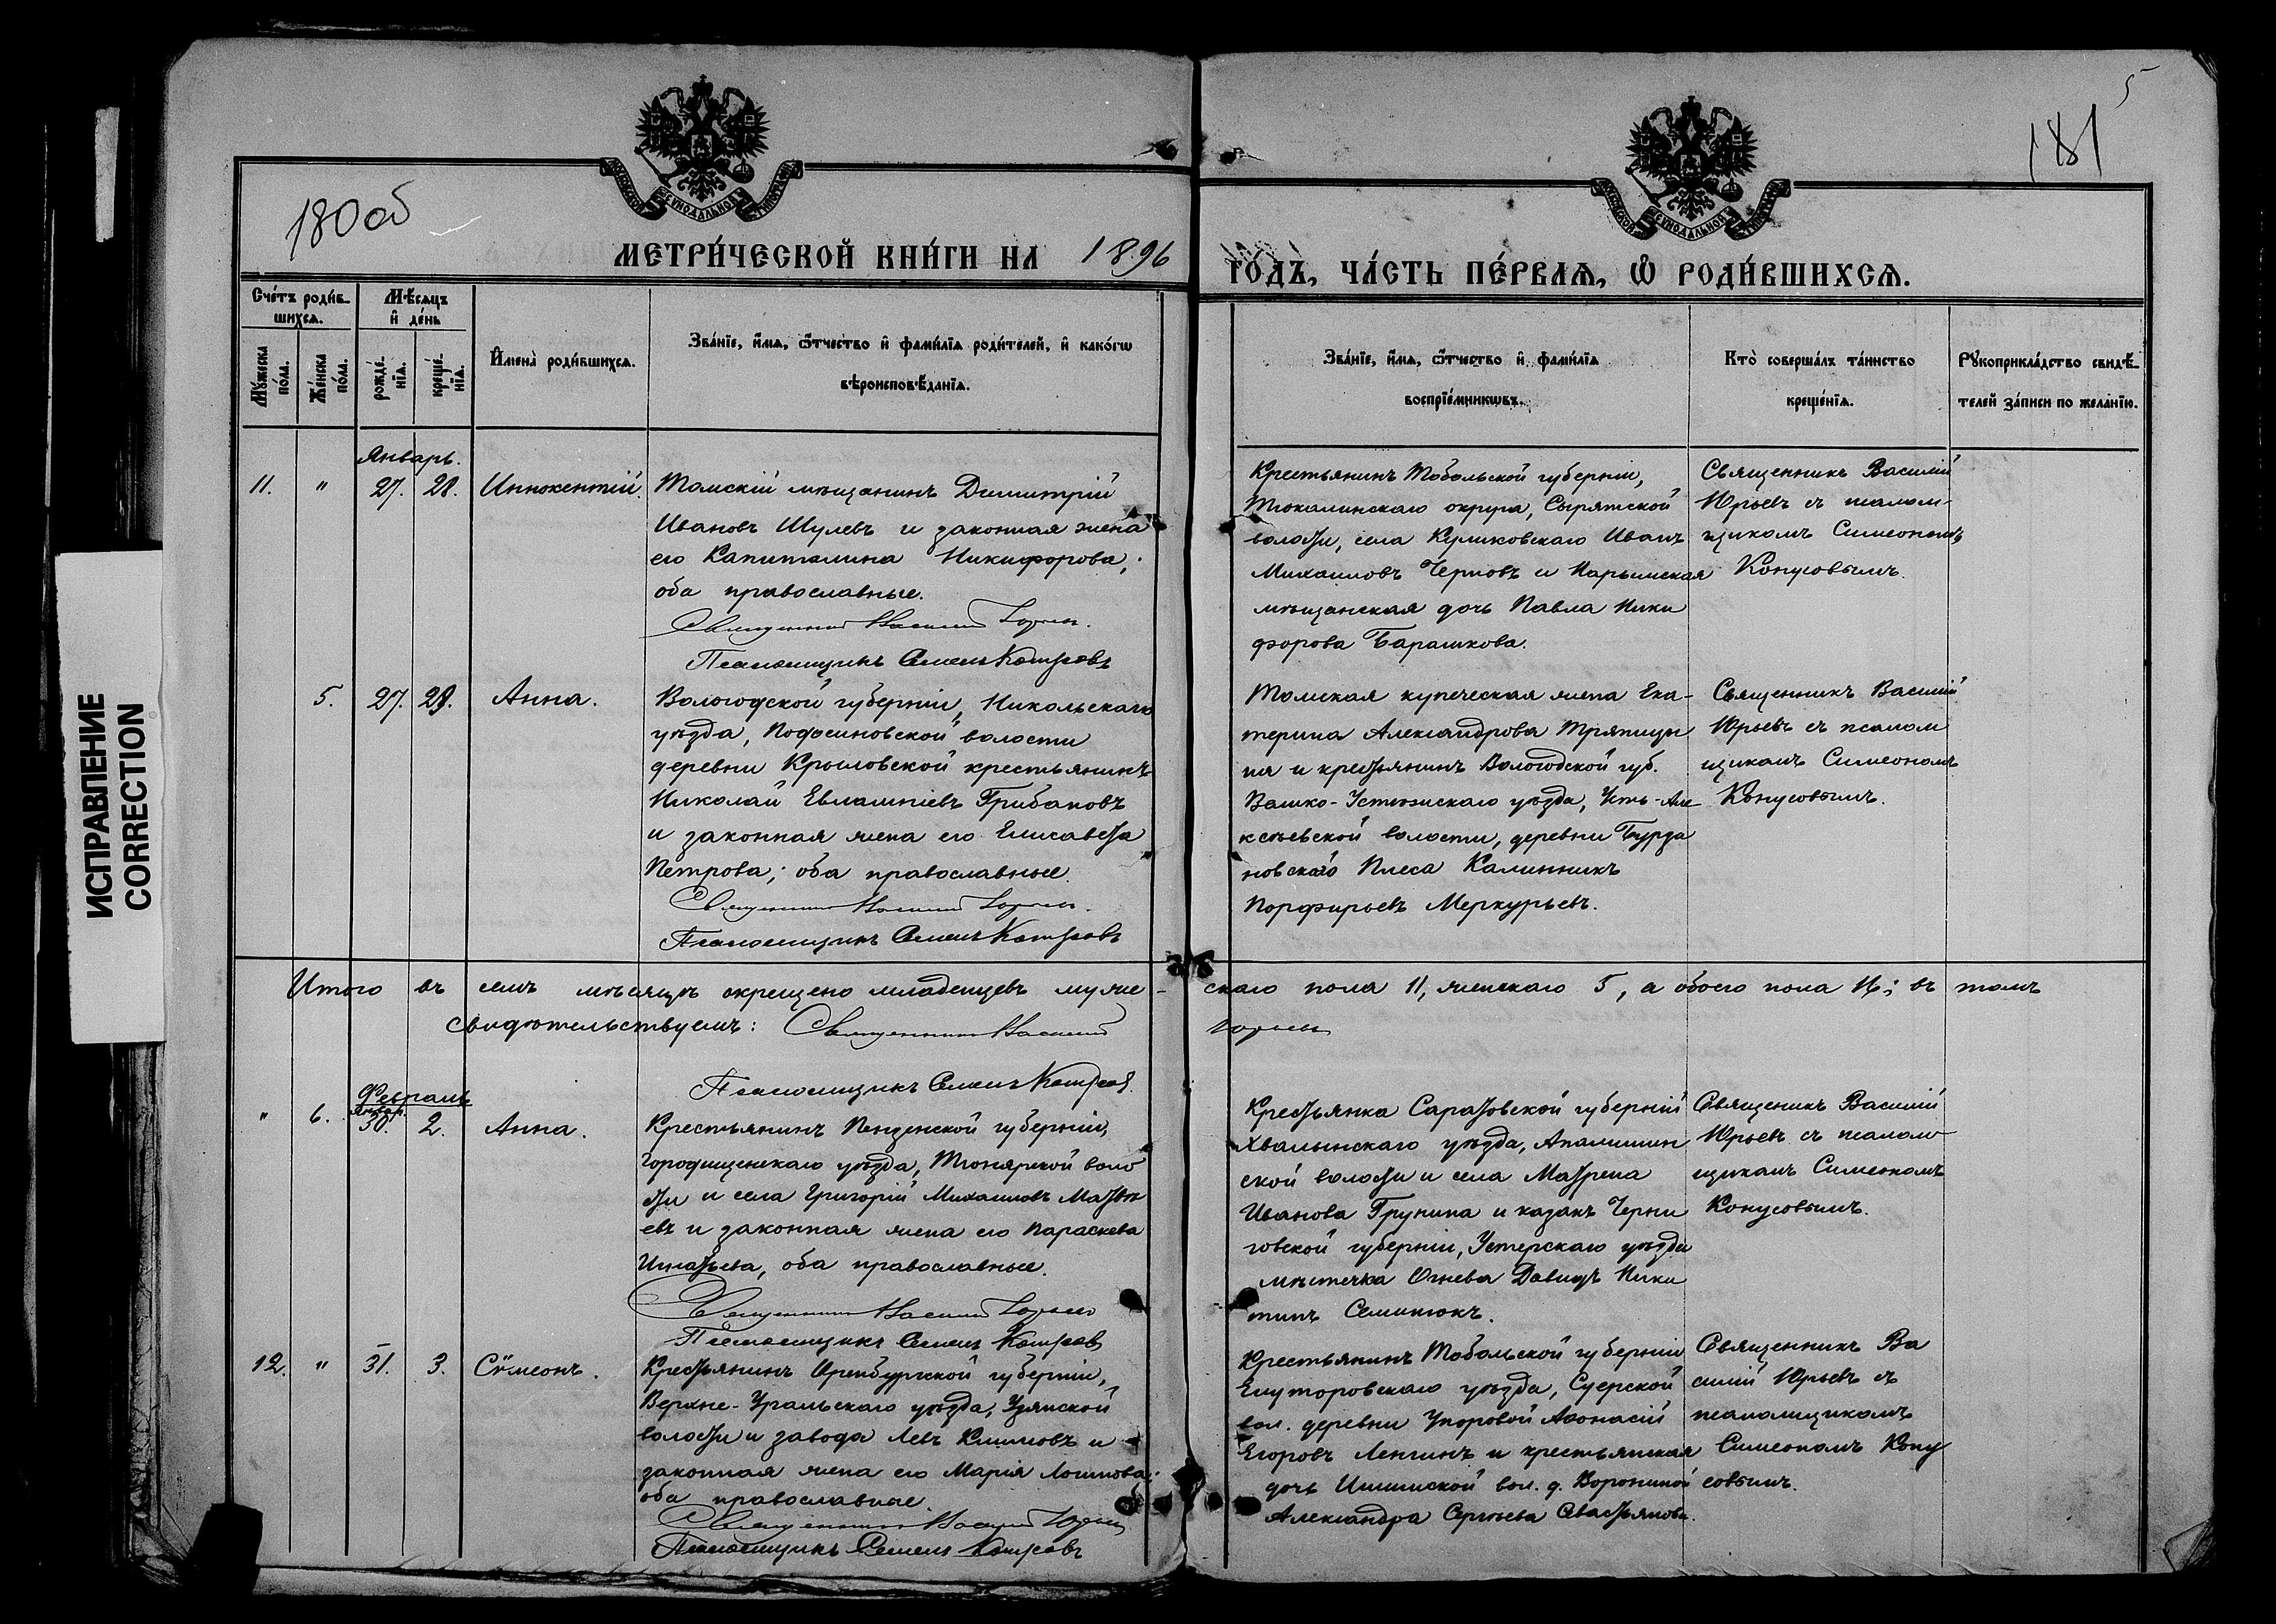 5
181
180 об
МОСКОВСКОЙ СѴНОДАЛЬНОЙ ТИПОГРАФІИ
МОСКОВСКОЙ СѴНОДАЛЬНОЙ ТИПОГРАФІИ
МЕТРИ́ЧЕСКОЙ КНИ́ГИ НА 1896
ГО́ДЪ, ЧА́СТЬ ПЕ́РВАѦ, Ѿ РОДИ́ВШИХСѦ.
Сче́тъ роди́в-
шихсѧ.
Мѣ́сѧцъ
и҆ де́нь
Мꙋ́жеска
по́ла.
Же́нска
по́ла.
рожде́-
нїѧ.
креще́-
нїѧ.
И҆мена̀ роди́вшихсѧ.
Зва́нїе, и҆́мѧ, ѻ҆́тчество и҆ фами́лїѧ роди́телей, и҆ како́гѡ
вѣроисповѣ́данїѧ.
Зва́нїе, и҆́мѧ, ѻ҆́тчество и҆ фами́лїѧ
воспрїе́мникѡвъ.
Кто̀ соверша́лъ та́инство
креще́нїѧ.
Рꙋкоприкла́дство свидѣ́-
телей за́писи по жела́нїю.
Январь.
11. " 27. 28. Иннокентій.
Томскій мѣщанинъ Димитрій
Ивановъ Шулевъ и законная жена
его Капитолина Никифорова;
оба православные.
Священникъ Василій Юрьевъ
Псаломщикъ Семенъ
Крестьянинъ Тобольской губерніи,
Тюкалинскаго округа, Сыряткой
волости, села Куликовскаго Иванъ
Михаиловъ Черновъ и Нарымская
мѣщанская дочь Павла Ники
форова Барашкова.
Священникъ Василій
Юрьевъ съ псалом-
щикомъ Симеономъ
Конусовымъ.
5. 27. 28. Анна.
Вологодской губерніи, Никольскаго
уѣзда, Подосиновской волости
деревни Крысловской крестьянинъ
Николай Евлампіевъ Грибановъ
и законная жена его Елисавета
Петрова; оба православные.
Священникъ Василій Юрьевъ
Псаломщикъ Семенъ
Томская купеческая жена Ека-
терина Александрова Тряпицы
на и крестьянинъ Вологодской губ.
Велико-Устюжскаго уѣзда, Усть-Але
ксѣевской волости, деревни Бурда
новскаго Плеса Калинникъ
Порфирьевъ Меркурьевъ.
Священникъ Василій
Юрьевъ съ псалом
щикомъ Симеономъ
Конусовымъ.
Итого въ семъ мѣсяцѣ окрещено младенцевъ муже-скаго пола 11, женскаго 5, а обоего пола 16; въ томъ
свидѣтельствуемъ: Священникъ Василій Юрьевъ
Псаломщикъ Семенъ
Февраль
Январ.
" 6. 30. 2. Анна.
Крестьянинъ Пензенской губерніи,
Городищенскаго уѣзда, Тюнярской воло
сти и села Григорій Михаиловъ Матвѣ
евъ и законная жена его Параскева
Игнатьева, оба православные.
Священникъ Василій Юрьевъ
Псаломщикъ Семенъ
Крестьянка Саратовской губерніи
Хвалынскаго уѣзда, Апалишин
ской волости и села Матрена
Иванова Грунина и казакъ Черни
говской губерніи, Устерскаго уѣзда
мѣстечка Огнева Давидъ Ники
тинъ Семинюкъ.
Священикъ Василій
Юрьевъ съ псаломо
щикомъ Симеономъ
Конусовымъ.
12. " 31. 3. Сѵмеонъ.
Крестьянинъ Оренбургской губерніи,
Верхне-Уральскаго уѣзда, Узянской
волости и завода Левъ Климовъ и
законная жена его Марія Логинова;
оба православные.
Священникъ Василій Юрьевъ
Псаломщикъ Семенъ
Крестьянинъ Тобольской губерніи
Ялуторовскаго уѣзда, Суерской
вол. деревни Упоровой Аѳонасій
Егоровъ Ленгинъ и крестьянская
дочь Ишимской вол. д. Ворониной
Александра Сергѣева Севастьянова.
Священникъ Ва
силій Юрьевъ съ
псаломщикомъ
Симеономъ Кону
совымъ.
ИСПРАВЛЕНИЕ
CORRECTION